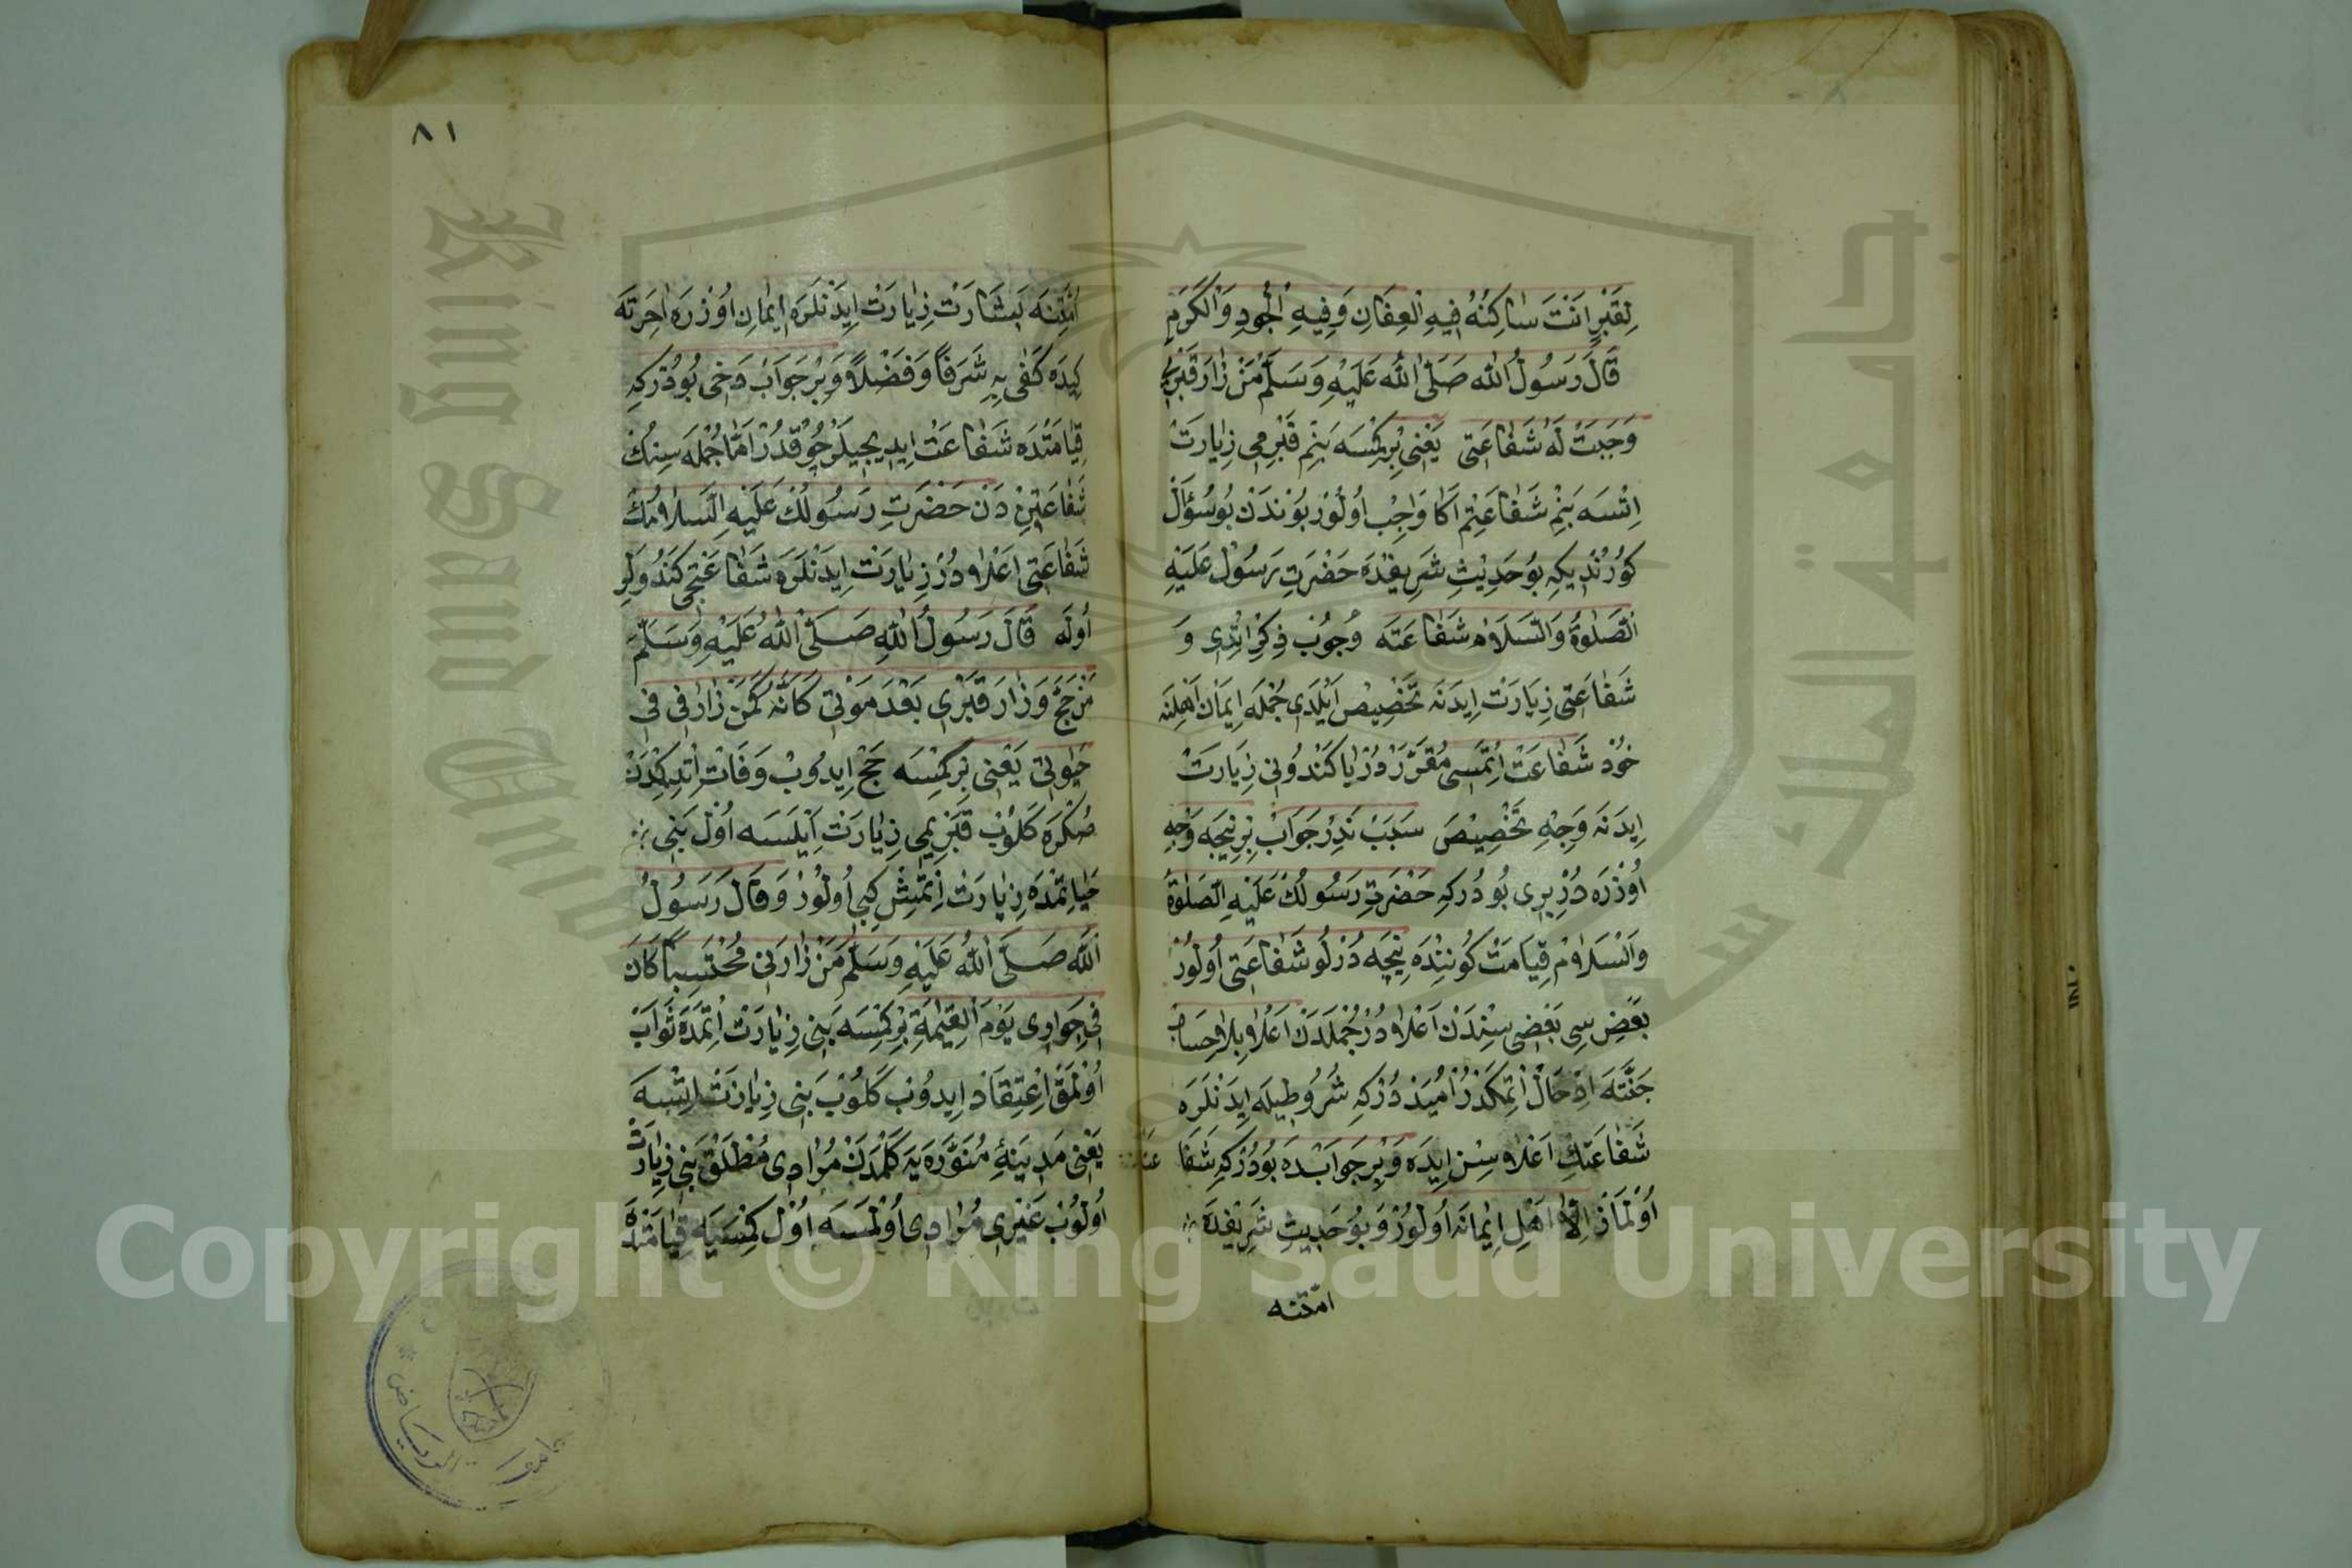 لِقَبْرٍ اَنْتَ سٰاكِنُهُ فِيهِ الْعِفَافُ وَفِيهِ الْجُودِ وَالْكَرَمِ
قَالَ رَسُولُ اللّٰه صَلَّى اللّٰه عَلَيْهِ وَسَلَّمْ مَنْ زٰارَ قَبْرِي
وَجَبَتْ لَهُ شَفٰاعَتِى يَعْنِى بِرْ كِمْسَه بَنِمْ قَبْرِمِى زِيٰارَتْ
اِتْسَه بَنِمْ شَفٰاعَتِمْ اَكَا وَاجِبْ اُولُورْ بُونْدَنْ بُو سُؤَالْ
كُورُنْدِيكِه بُو حَدِيثِ شَرِيفْدَه حَضْرَتِ رَسُولْ عَلَيْهِ
الصَّلٰوةُ وَالسَّلَامْ شَفٰاعَتَه وُجُوبْ ذِكْرْ اِتْدِى وَ
شَفٰاعَتِى زِيَارَتْ اِيدَنَه تَخْصِيصْ اَيْلَدِى جُمْلَه اِيمَانْ اَهْلِنَه
خُودْ شَفٰاعَتْ اِتْمَسِى مُقَرَّرْدُرْ يَا كَنْدُونِى زِيَارَتْ
اِيدَنَه وَجِهِ تَخْصِيصَ سَبَبْ نَدِرْ جَوَابْ بِرْ نِيجَه وَجِهِ
اُوزْرَه دُرْ بِرِى بُودُركِه حَضْرَتِ رَسُولُكْ عَلَيْهِ الصَّلٰوةُ
وَالسَّلٰامْ قِيَامَتْ كُونِنْدَه نِيجَه دُرْلُو شَفٰاعَتِى اُولُورْ
بَعْضِ سِى بَعْضِى سِنْدَنْ اَعْلٰا دُرْ جُمْلَدَنْ اَعْلٰا بِلٰا حِسَابْ
جَنَّتَه اِدْخَالْ اِتْمَكْدُرْ اُمِيدْ دُرْكِه شُرُوطِيلَه اِيدَنْلَرَه
شَفٰاعَتِكْ اَعْلٰاسِنْ اِيدَه وَبِرْ جَوَابْدَه بُودُرْكِه شَفَا عَتْ
اُولْمَازْ اِلَّا اَهْلِ اِيمَانَه اُولُورْ وَبُو حَدِيثِ شَرِيفْدَه
امّتنه
٨١
اُمَّتِنَه بَشَارَتْ زِيٰارَتْ اِيدَنْلَرَه اِيمَانِ اُوزْرَه اٰخِرَتَه
كِيدَه كَفٰى بِهِ شَرَفاً وَفَضْلاً وَبِرْ جَوَابْ دَخِى بُودُرْكِه
قِيٰامَتْدَه شَفٰاعَتْ اِيدِيجِيلَرْ چُوقْدُرْ اَمَّا جُمْلَه سِنُكْ
شَفٰاعَتِنْدَنْ حَضْرَتِ رَسُولُكْ عَلَيْهِ السَّلٰامُكْ
شَفٰاعَتِى اَعْلٰا دُرْ زِيَارَتْ اِيدَنْلَرَه شَفٰاعَتْچِى كَنْدُولَرِ
اُولَه قَالَ رَسُولُ اللّٰهِ صَلَّى اللّٰهُ عَلَيْهِ وَسَلَّمَ
مَنْ حَجَّ وَزٰارَ قَبْرِى بَعْدَ مَوْتِى كَانَّهُ كَمَنْ زٰارَنِى فِى
حَيٰوتِى يَعْنِى بِرْ كِمْسَه حَجْ اِيدُوبْ وَفَاتْ اِتْدِكْدَنْ
صُكْرَه كَلُوبْ قَبْرِيمِى زِيٰارَتْ اَيْلَسَه اُولْ بَنِى
حَيٰاتِمْدَه زِيٰارَتْ اِتْمِشْ كِبِى اُولُورْ وَقَالَ رَسُولُ
اللّٰه صَلَّى اللّٰهُ عَلَيْهِ وَسَلَّمْ مَنْ زٰارَنِى مُحْتَسِباً كَانَ
فِى جَوَارِى يَوْمَ الْقِيٰمَةِ بِرْ كِمْسَه بَنِى زِيٰارَتْ اِتْمَدَه ثَوَابْ
اُولْمَقْ اِعْتِقَادْ اِيدُوبْ كَلُوبْ بَنِى زِيَارَتْ اِتْسَه
يَعْنِى مَدِينَهٔ مُنَوَّرَه يَه كَلْمَدَنْ مُرَادِى مُطْلَقْ بَنِى زِيَارَتْ
اُولُوبْ غَيْرِى مُرَادِى اُولْمَسَه اُولْ كِمْسَيَه قِيَامَتْدَه
جامعة الرياض
King Saud University
جامعة الملك سعود
Copyright © King Saud University